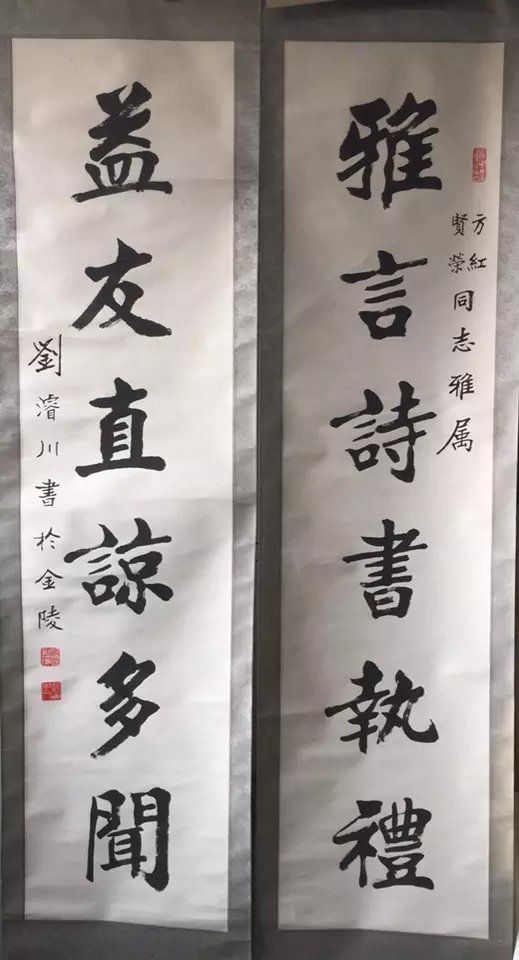 雅言詩書執禮
方紅
賢榮
同志雅属
益友直諒多聞
劉濬川書於金陵